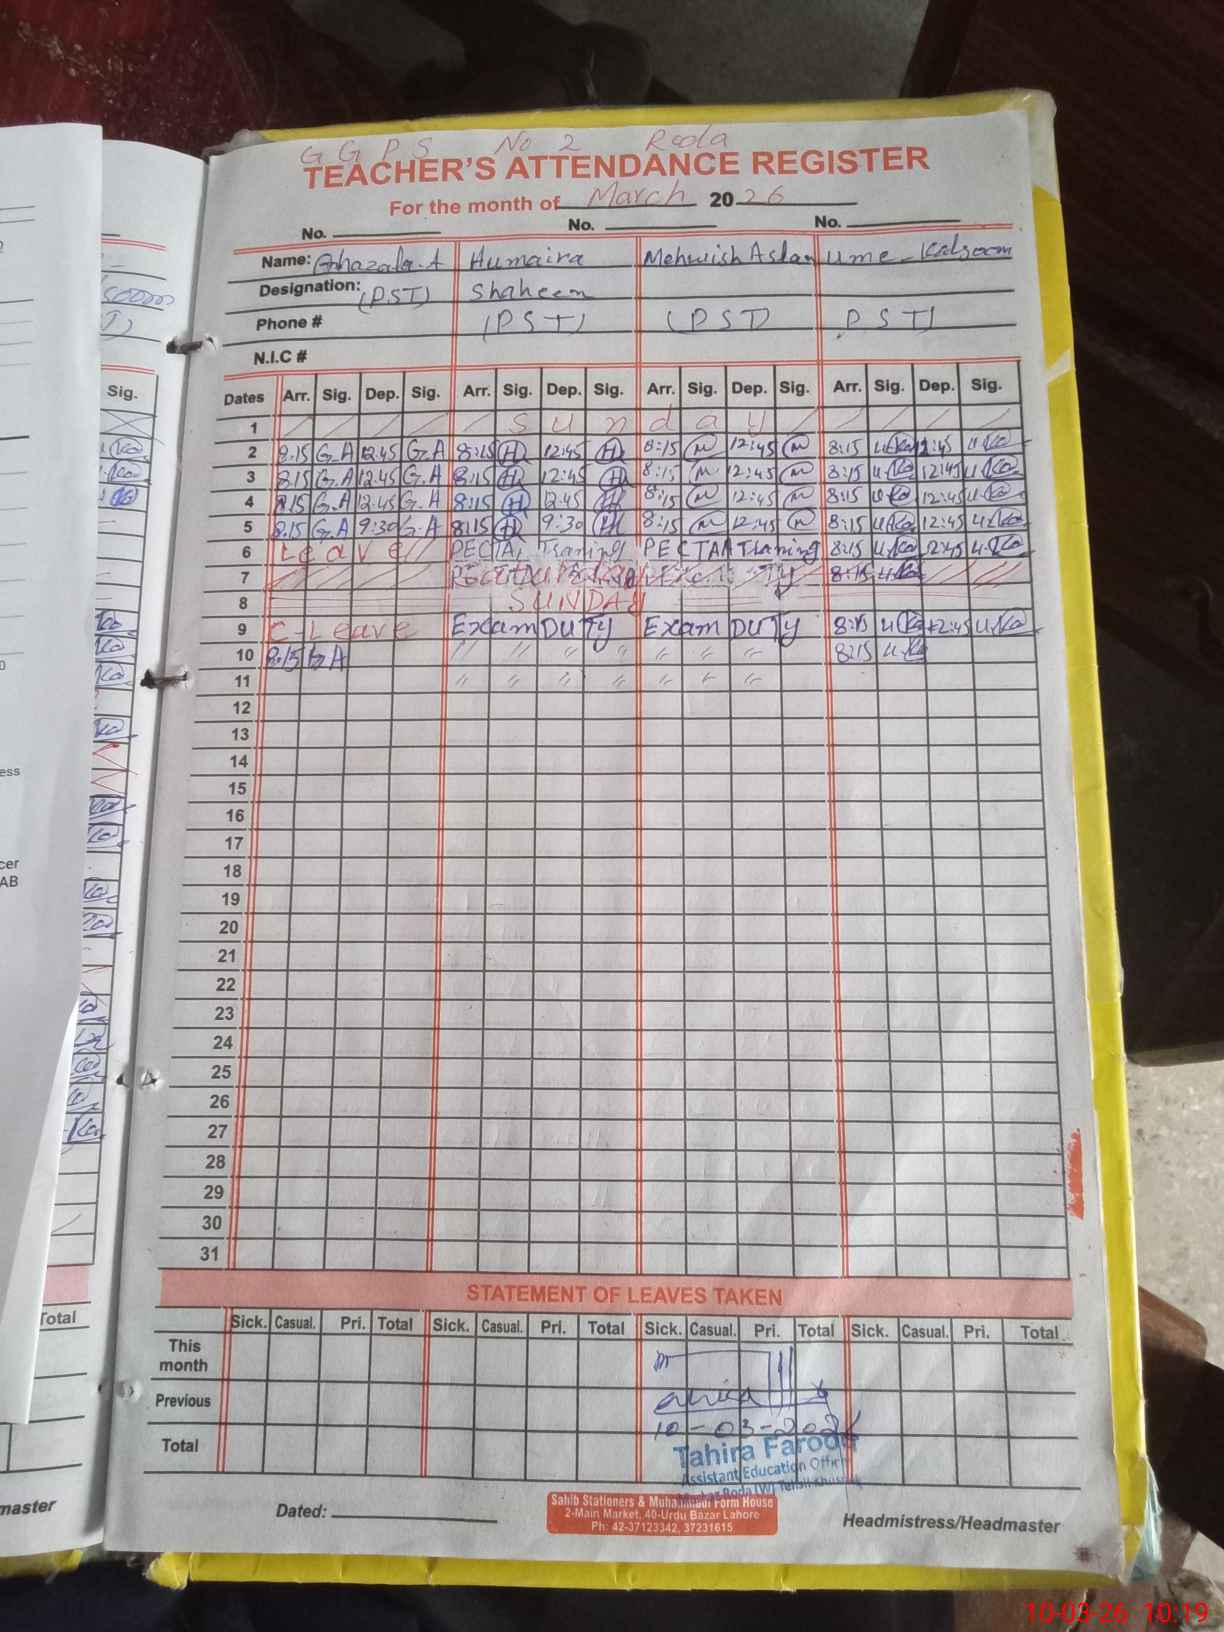 G G P S No 2 Roda
TEACHER'S ATTENDANCE REGISTER
For the month of March 2026
No. No. No.
Name: Ghazala.A Humaira Mehwish Aslam Ume Kalsoom
Designation: (PST) Shaheen
Phone # (PST) (PST) PST)
N.I.C #
Dates Arr. Sig. Dep. Sig. Arr. Sig. Dep. Sig. Arr. Sig. Dep. Sig. Arr. Sig. Dep. Sig.
1 Sunday
2 8:15 G.A 12:45 G.A 8:15 H 12:45 H 8:15 M 12:45 M 8:15 U.Ka 12:45 U.Ka
3 8:15 G.A 12:45 G.A 8:15 H 12:45 H 8:15 M 12:45 M 8:15 U.Ka 12:45 U.Ka
4 8:15 G.A 12:45 G.A 8:15 H 12:45 H 8:15 M 12:45 M 8:15 U.Ka 12:45 U.Ka
5 8:15 G.A 9:30 G.A 8:15 H 9:30 H 8:15 M 12:45 M 8:15 U.Ka 12:45 U.Ka
6 Leave PECTAA Traning PECTAA Traning 8:15 U.Ka 2:45 U.Ka
7 8:15 U.Ka
8 SUNDAY
9 C-Leave Exam DUTY Exam DUTY 8:15 U.Ka 12:45 U.Ka
10 8:15 G.A " " " " " " " 8:15 U.Ka
11 " " " " " " "
12
13
14
15
16
17
18
19
20
21
22
23
24
25
26
27
28
29
30
31
STATEMENT OF LEAVES TAKEN
Sick. Casual. Pri. Total Sick. Casual. Pri. Total Sick. Casual. Pri. Total Sick. Casual. Pri. Total
This
month
Previous
Total
10-03-2026
Tahira Farooq
Assistant Education Officer
Dated:
Sahib Stationers & Muhammadi Form House
2-Main Market, 40-Urdu Bazar Lahore
Ph: 42-37123342, 37231615
Headmistress/Headmaster
Sig.
Total
master
ess
cer
AB
10-03-26 10:19